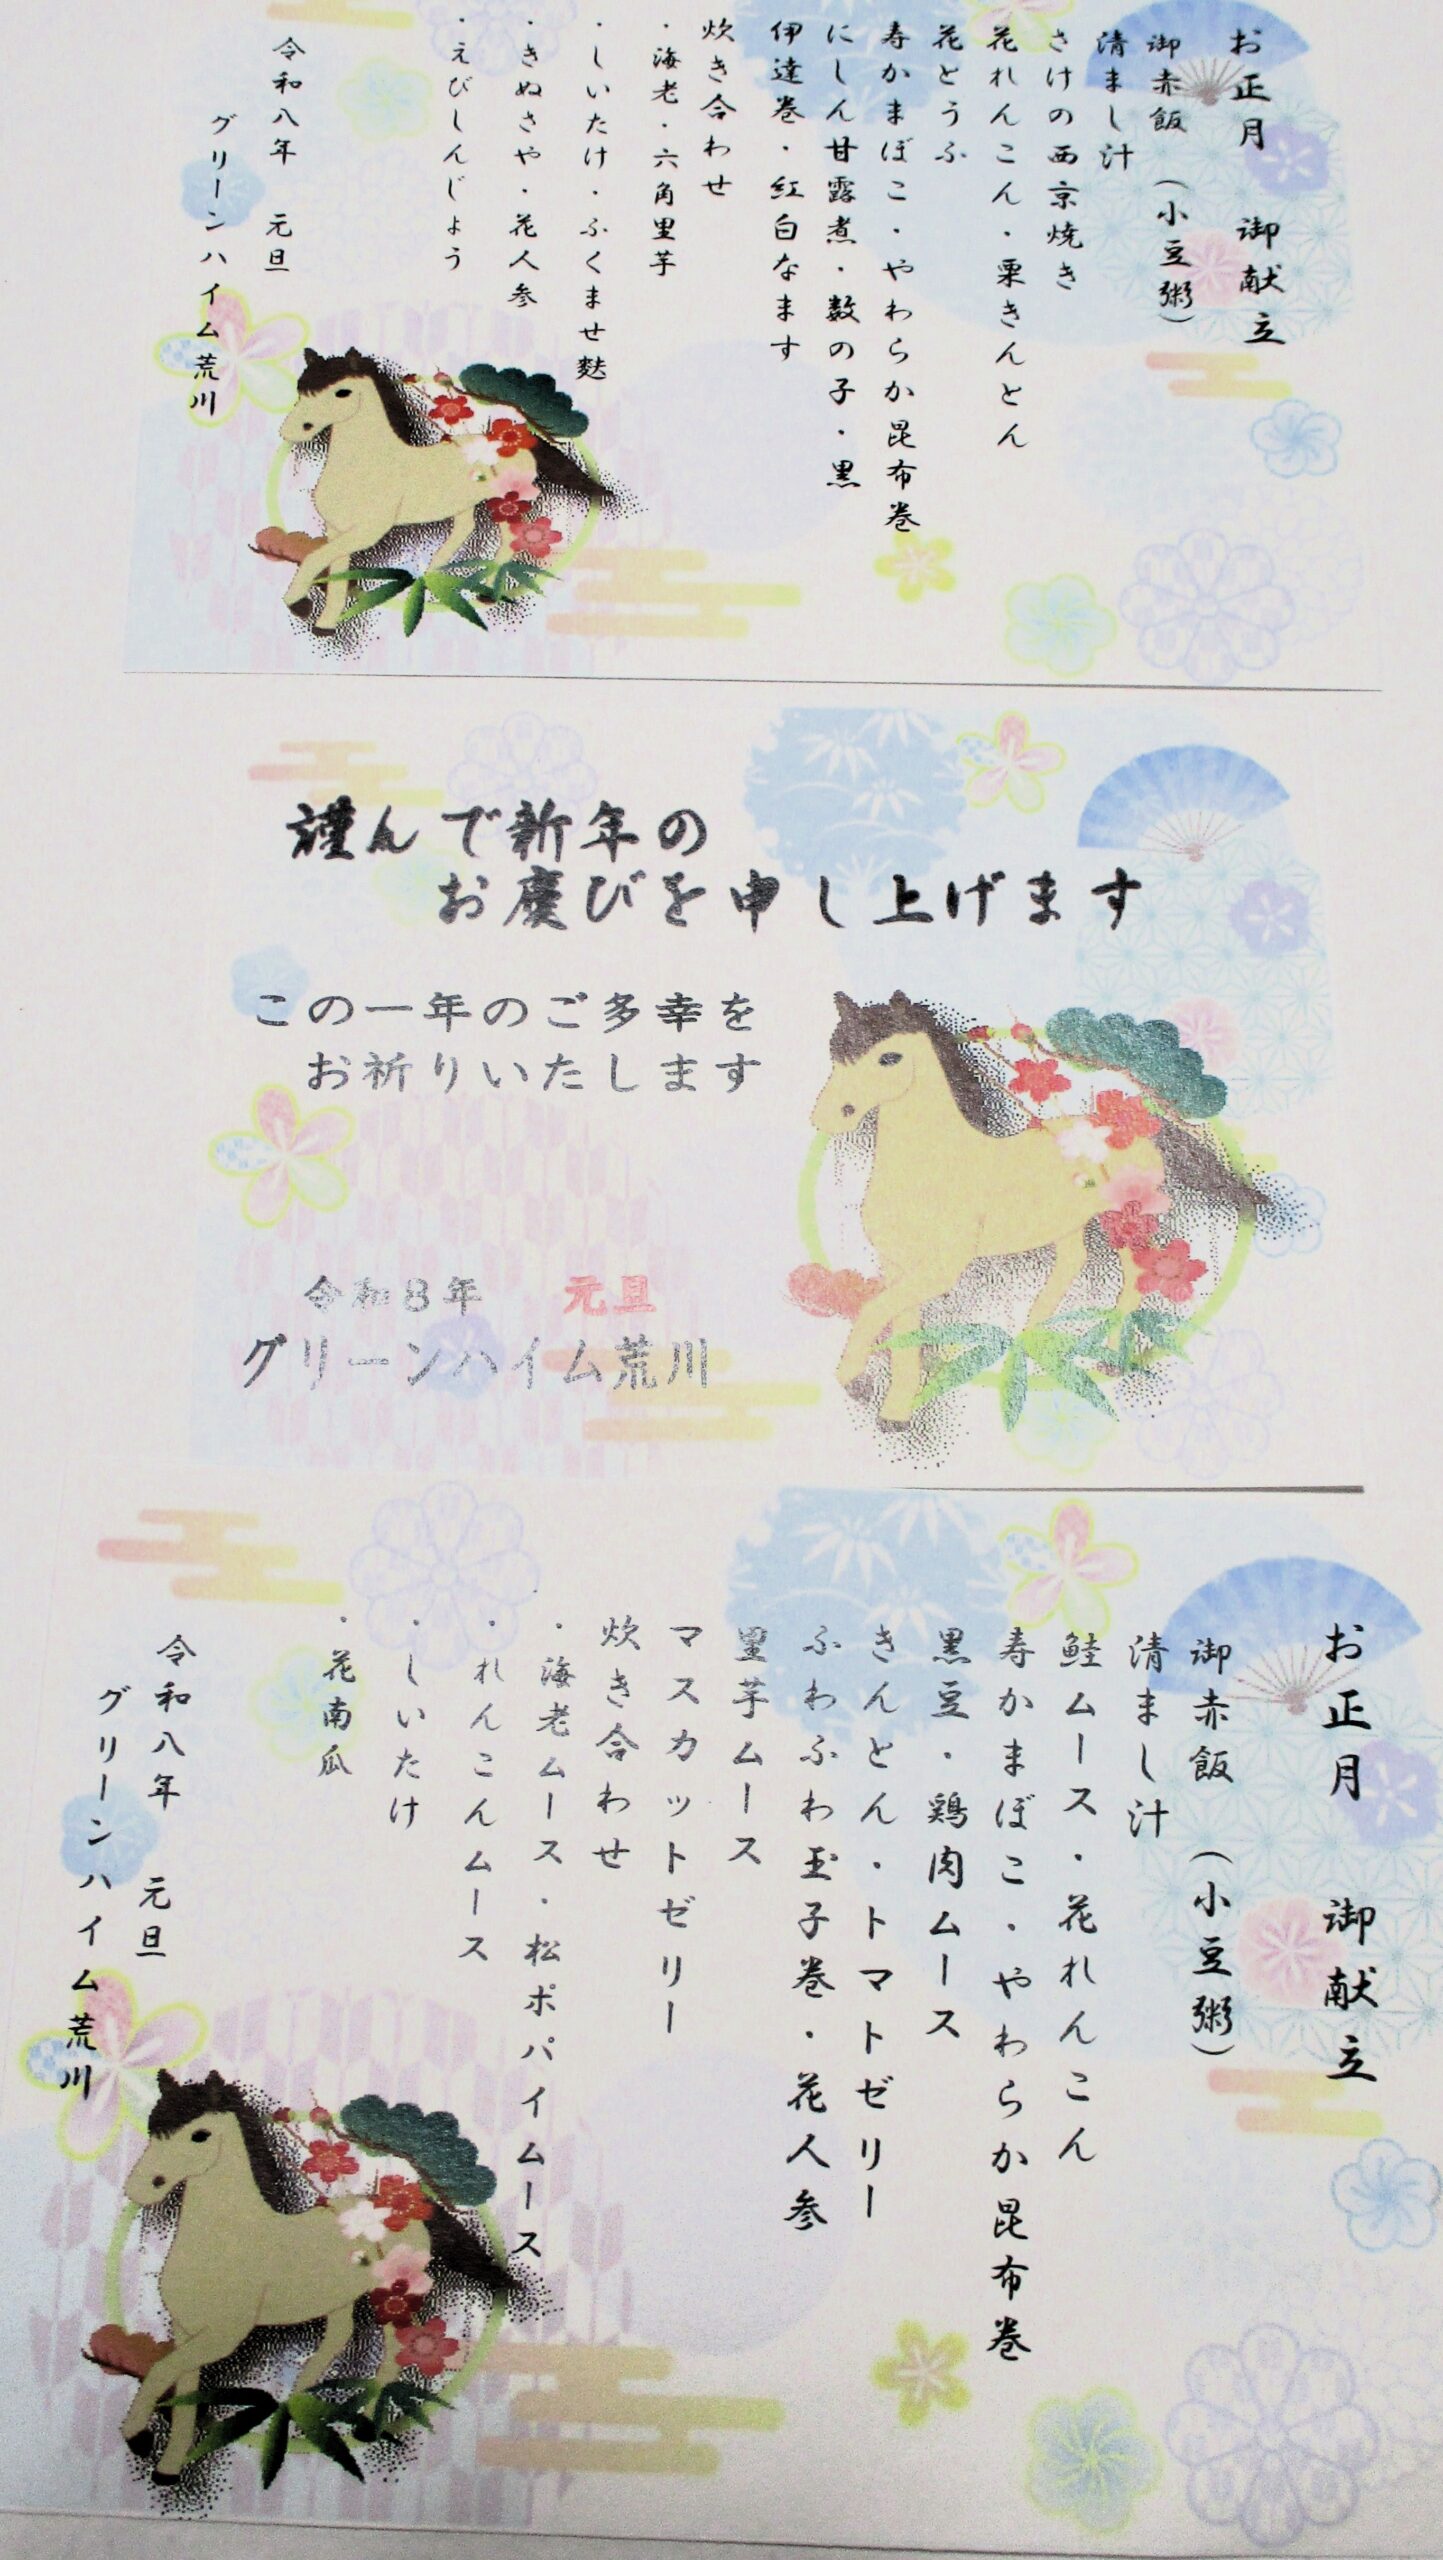 お正月　御献立
御赤飯　（小豆粥）
清まし汁
さけの西京焼き
花れんこん・栗きんとん
花とうふ
寿かまぼこ・やわらか昆布巻
にしん甘露煮・数の子・黒
伊達巻・紅白なます
炊き合わせ
・海老・六角里芋
・しいたけ・ふくませ麩
・きぬさや・花人参
・えびしんじょう
令和八年　元旦
グリーンハイム荒川
謹んで新年の
お慶びを申し上げます
この一年のご多幸を
お祈りいたします
令和8年　元旦
グリーンハイム荒川
お正月　御献立
御赤飯　（小豆粥）
清まし汁
鮭ムース・花れんこん
寿かまぼこ・やわらか昆布巻
黒豆・鶏肉ムース
きんとん・トマトゼリー
ふわふわ玉子巻・花人参
里芋ムース
マスカットゼリー
炊き合わせ
・海老ムース・松ポパイムース
・れんこんムース
・しいたけ
・花南瓜
令和八年　元旦
グリーンハイム荒川